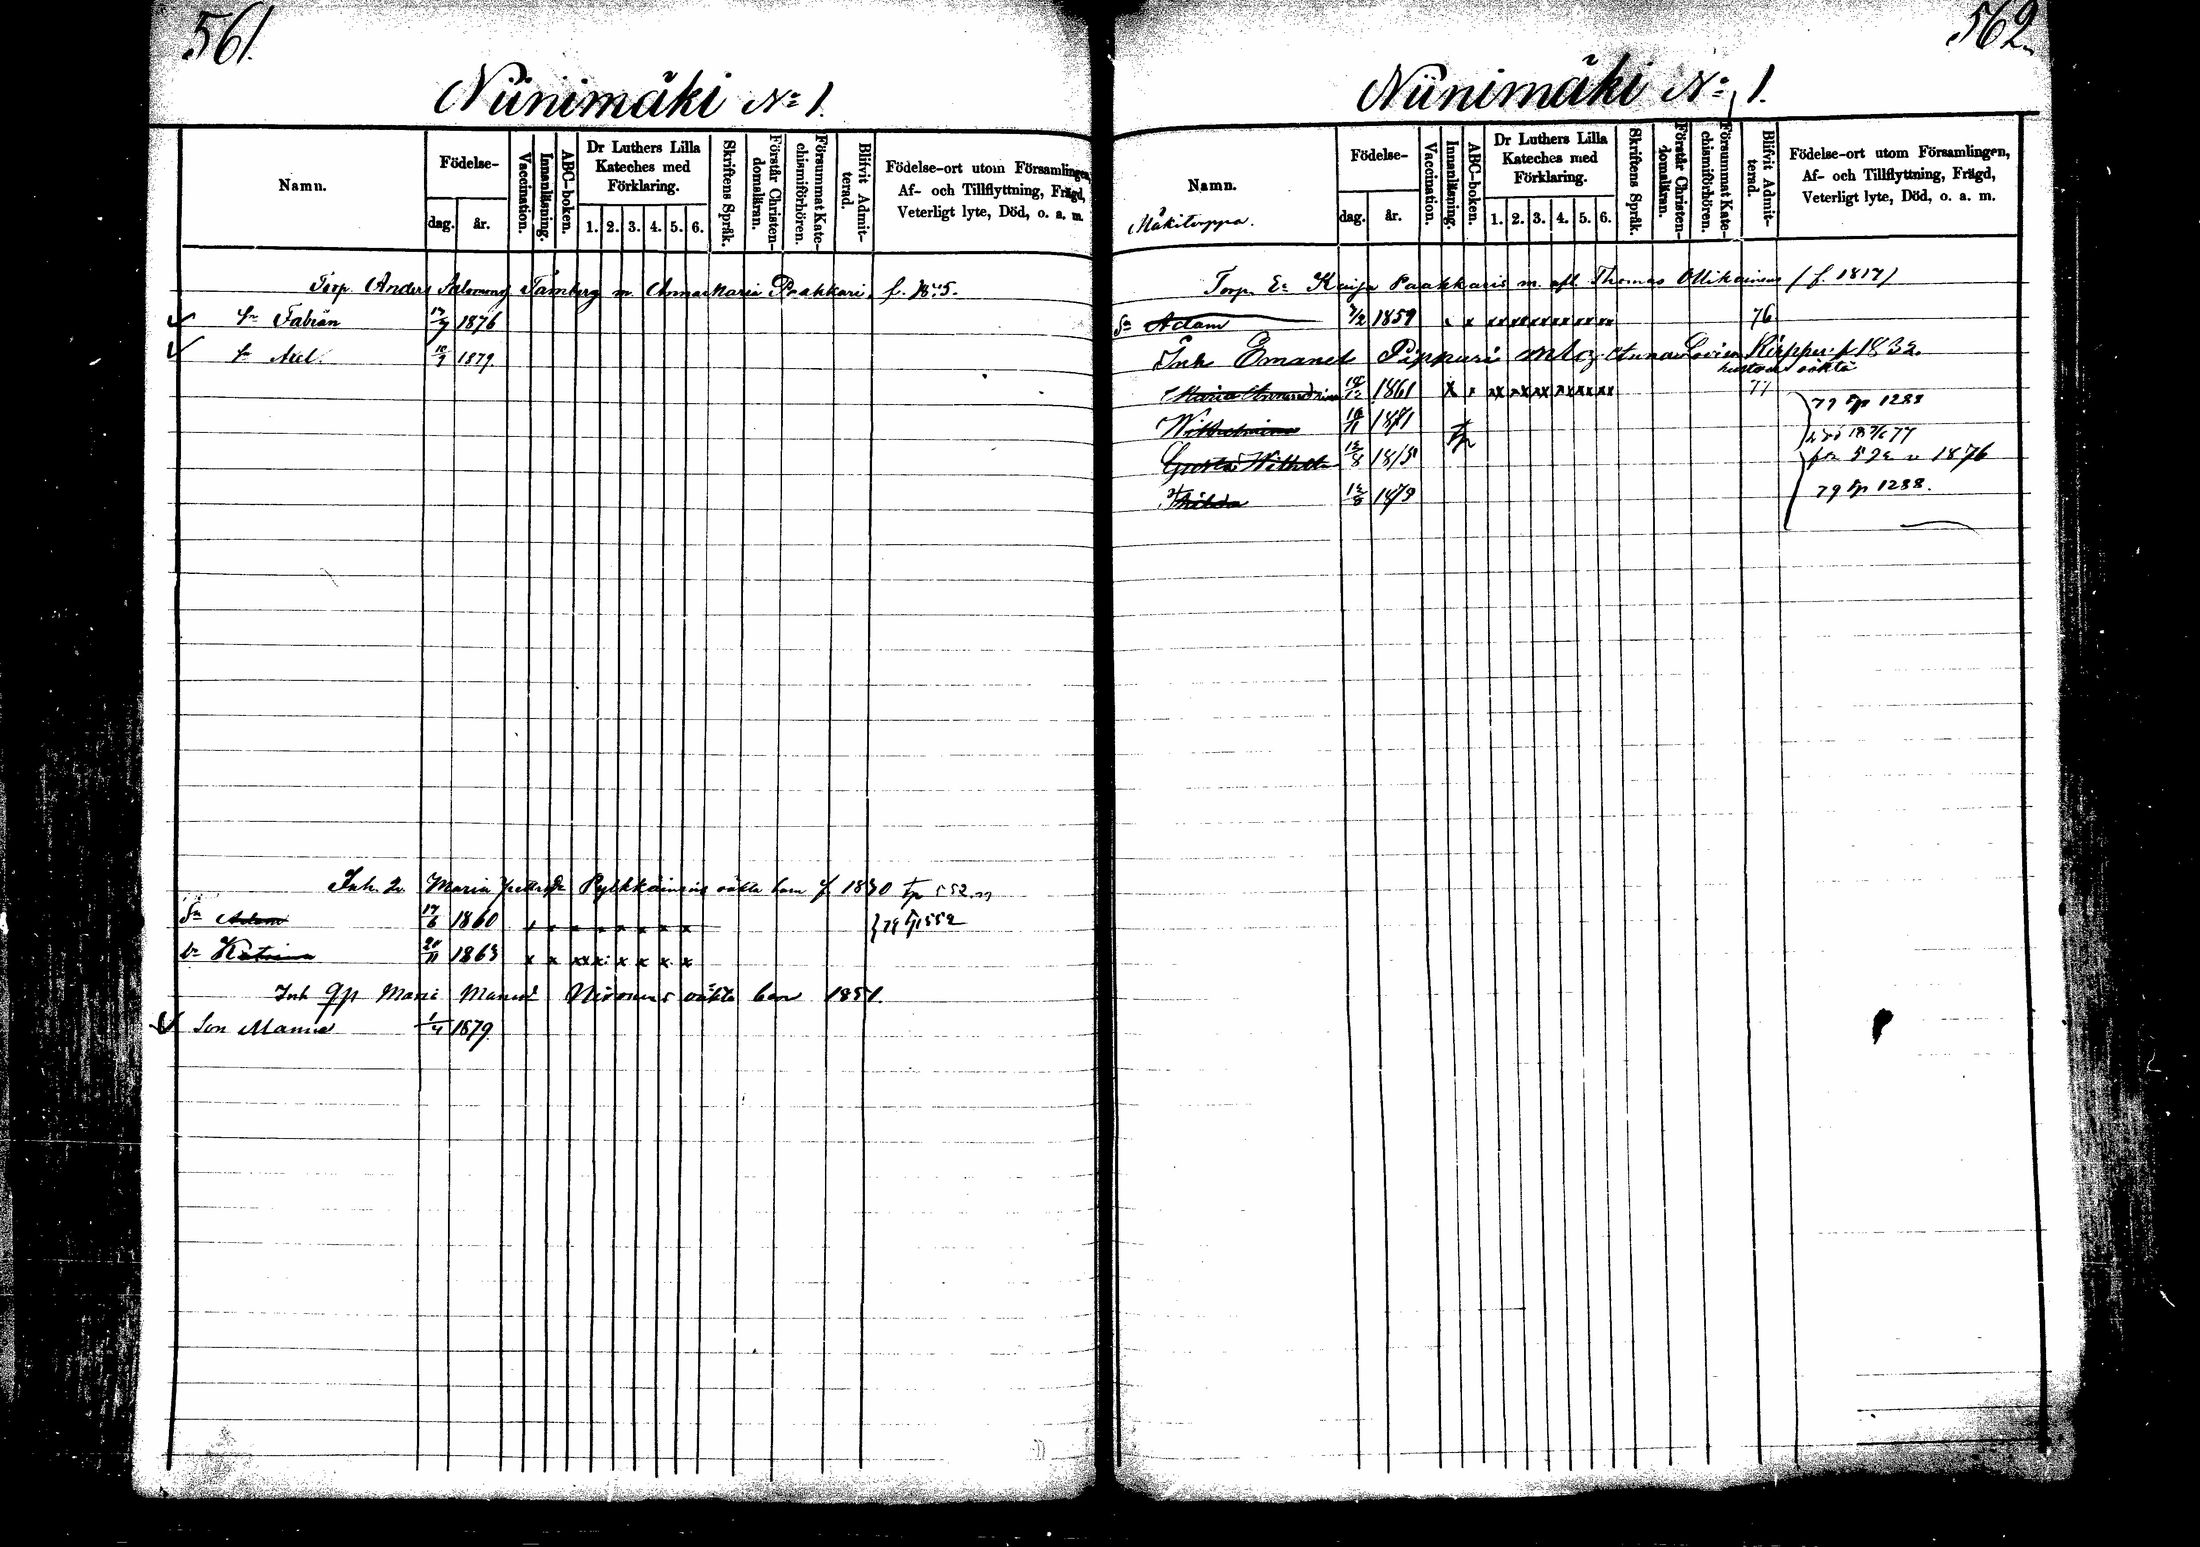 561.
Niinimäki No 1.
Namn.
Födelse-
dag.
år.
Vaccination.
Innanläsning.
ABC-boken.
Dr Luthers Lilla
Kateches med
Förklaring.
1. 2. 3. 4. 5. 6.
Skriftens Språk.
Förstår Christen-
domsläran.
Försummat Kate-
chismiförhören.
Blifvit Admit-
terad.
Födelse-ort utom Församlingen,
Af- och Tillflyttning, Frägd,
Veterligt lyte, Död, o. a. m.
Torp. Anders Salomons Tamberg m. Anna Maria Paakkari, f.
Sn Fabian 17/7 1876
Sn Axel. 10/9 1879.
Inh. Maria Pylkkäinens oäkta barn f. 1830 fp 552
Sn Adam 17/6 1860 x x x x x x x x
} 79 fp 552
Dr Katrina 20/11 1863 x x xx x x x x x
Inh Maria oäkta barn 1851.
Son Manne 1/4 1879.
562.
Niinimäki No 1.
Namn.
Mäkitorppa.
Födelse-
dag.
år.
Vaccination.
Innanläsning.
ABC-boken.
Dr Luthers Lilla
Kateches med
Förklaring.
1. 2. 3. 4. 5. 6.
Skriftens Språk.
Förstår Christen-
domsläran.
Försummat Kate-
chismiförhören.
Blifvit Admit-
terad.
Födelse-ort utom Församlingen,
Af- och Tillflyttning, Frägd,
Veterligt lyte, Död, o. a. m.
Torp. Enk. Kaisa Paakkaris m. afl. Thomas Ollikainens (f. 1817)
Sn Adam 7/2 1859 76
Inh Emanel Pippuri m Anna Lovisa f 1832.
hustrus oäkta
Maria 1861 77
79 fp 1288
Wilhelmina 1871
Gustaf Wilhelm 12/8 1875
1876
12/8 1878
79 fp 1288.